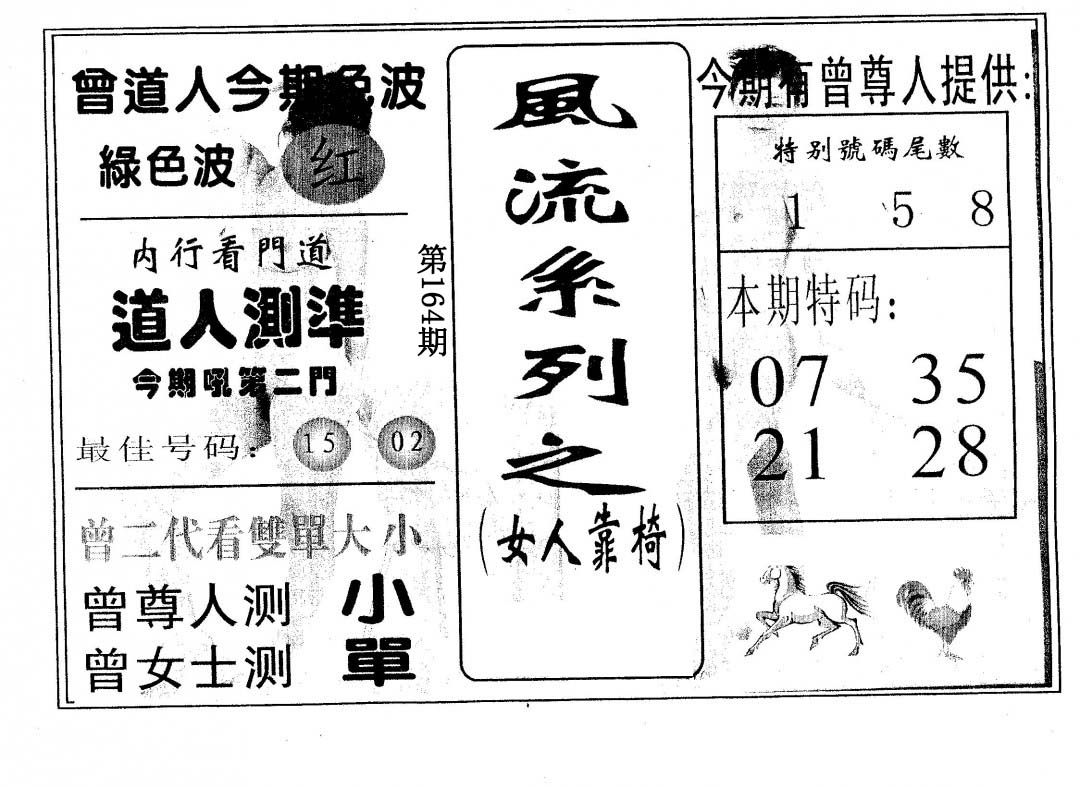 曾道人今期色波
綠色波 红
内行看門道
道人測準
今期吼第二門
最佳号码: 15 02
曾二代看雙單大小
曾尊人测 小
曾女士测 單
第164期
風流系列之
(女人靠椅)
今期有曾尊人提供:
特别號碼尾數
1 5 8
本期特码:
07 35
21 28